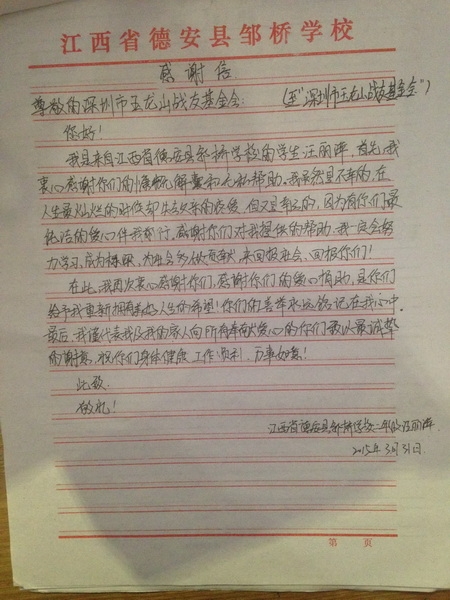 江西省德安县邹桥学校
感谢信
尊敬的深圳市玉龙山战友基金会: (至"深圳市玉龙山战友基金会")
您好!
我是来自江西省德安县邹桥学校的学生汪丽萍,首先,我
衷心感谢你们的慷慨解囊和无私帮助。我虽然是不幸的,在
人生最灿烂的时候却失去父亲的疼爱,但又是幸运的,因为有你们最
的爱心伴我前行。感谢你们对我提供的帮助。我一定会努
力学习,成为栋梁,为社会多做贡献,来回报社会,回报你们!
在此,我再次衷心感谢你们,感谢你们的爱心捐助,是你们
给予我重新拥有美好人生的希望!你们的善举永远铭记在我心中。
最后,我谨代表我及我的家人向所有奉献爱心的你们致以最诚挚
的谢意,祝你们身体健康,工作顺利,万事如意!
此致
敬礼!
江西省德安县邹桥学校二年级汪丽萍
2015年3月31日.
第 页